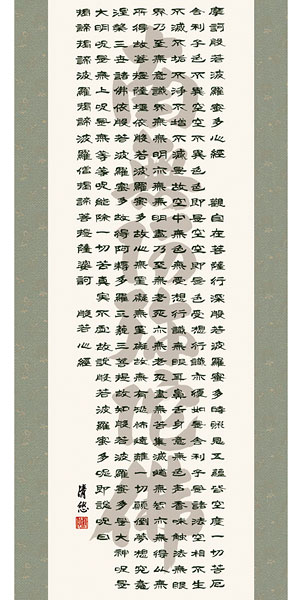 摩訶般若波羅蜜多心經 觀自在菩薩行深般若波羅蜜多時照見五蘊皆空度一切苦厄
舍利子色不異空空不異色色即是空空即是色受想行識亦復如是舍利子是諸法空相不生
不滅不垢不淨不增不減是故空中無色無受想行識無眼耳鼻舌身意無色声香味觸法無眼
界乃至無意識界無無明亦無無明盡乃至無老死亦無老死盡無苦集滅道無智亦無得以無
所得故菩提薩埵依般若波羅蜜多故心無罣礙無罣礙故無有恐怖遠離一切顛倒夢想究竟
涅槃三世諸佛依般若波羅蜜多故得阿耨多羅三藐三菩提故知般若波羅蜜多是大神呪是
大明呪是無上呪是無等等呪能除一切苦真實不虚故説般若波羅蜜多呪即説呪曰
羯諦羯諦波羅羯諦波羅僧羯諦菩提薩婆訶 般若心經
清悠